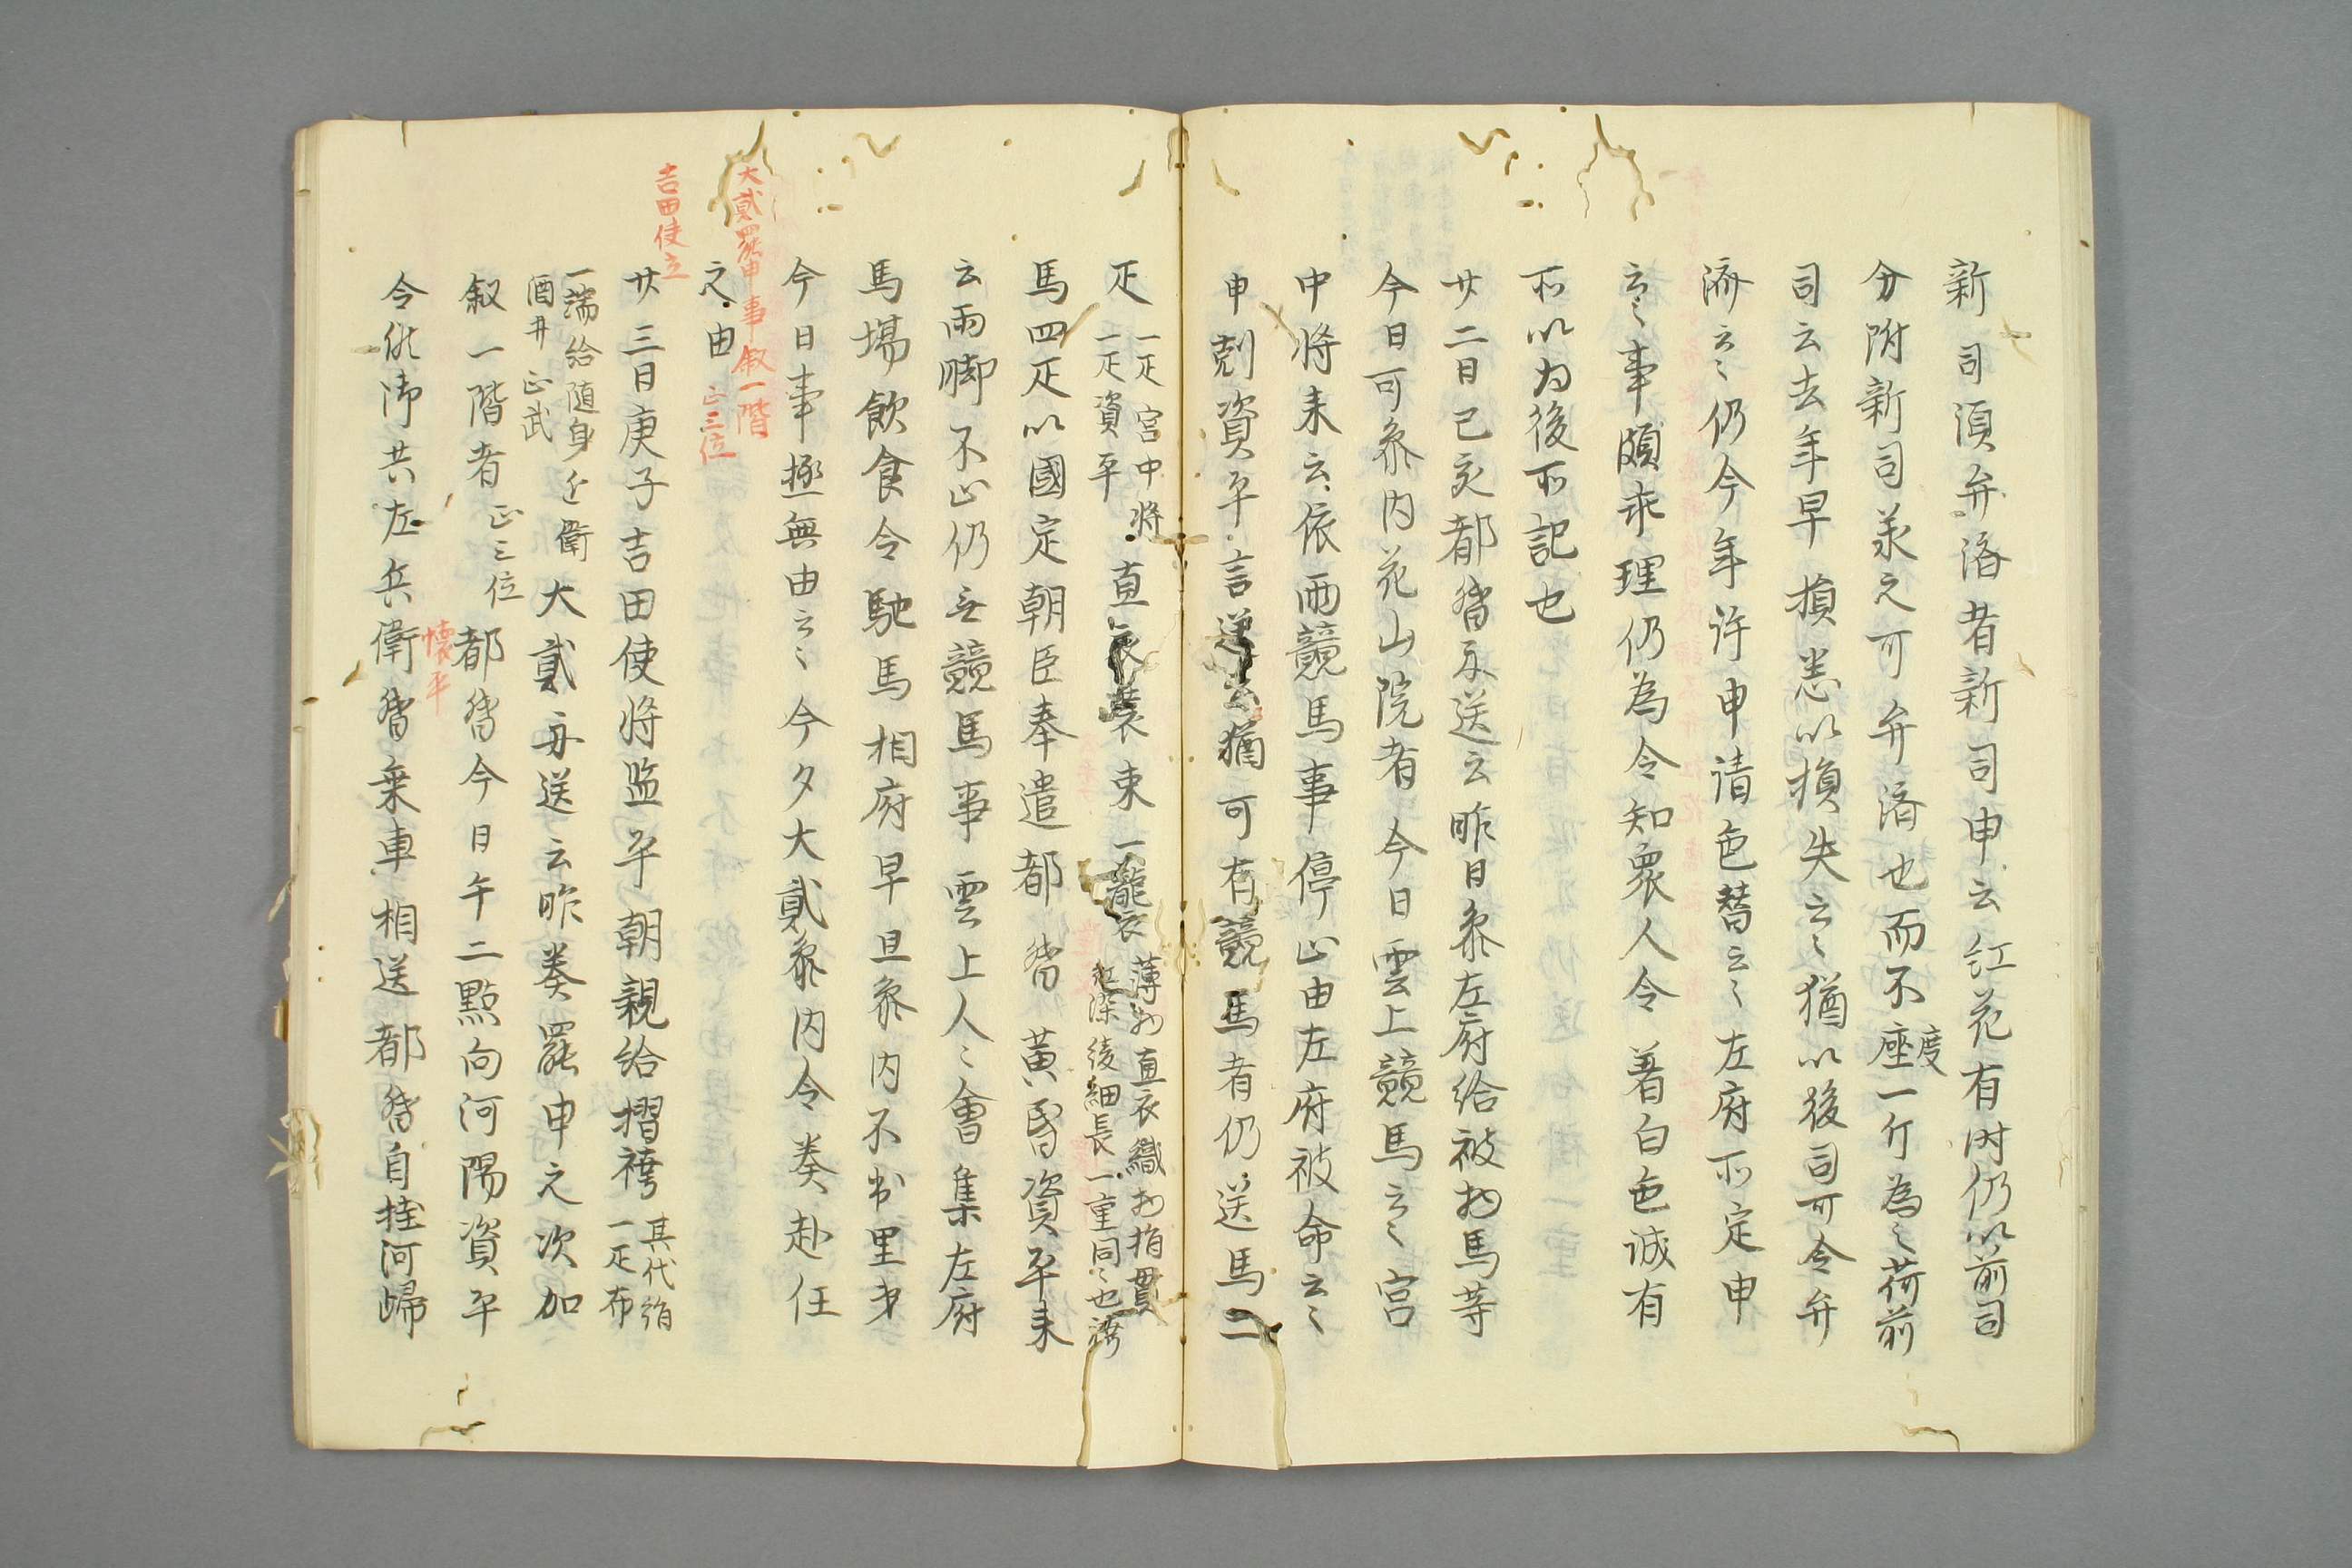 新司須弁済者新司申云紅花有内仍以前司
分附新司承之可弁済也而不座一斤為之荷前
度
司云去年早損恙以損失云々猶以後司可令弁
済云々仍今年許申請色替云々左府所定申
云々事頗乖理仍為令知衆人令着白色誠有
所以為後所記也
廿二日己亥都督示送云昨日参左府給被物馬等
今日可参内花山院者今日雲上競馬云々宮
中将来云依雨競馬事停止由左府被命云々
申剋資平言送云猶可有競馬者仍送馬二
疋 一疋宮中将
一疋資平 直衣装束一襲衣 薄物直衣織物指貫
紅染綾細長一重同々也袴
馬四疋以國定朝臣奉遣都督黄昏資平来
云雨脚不止仍無競馬事雲上人々會集左府
馬場飲食令馳馬相府早旦参内不出里第
今日事極無由云々今夕大貳参内令奏赴任
之由
大貳罷申事叙一階
正三位
吉田使立
廿三日庚子吉田使将監平朝親給摺袴 其代絹
一疋布
一端給随身近衛
酒井正武 大貳再送云昨奏罷申之次加
叙一階者 正三位 都督今日午二點向河陽資平
懐平
令供御共左兵衛督乗車相送都督自桂河帰